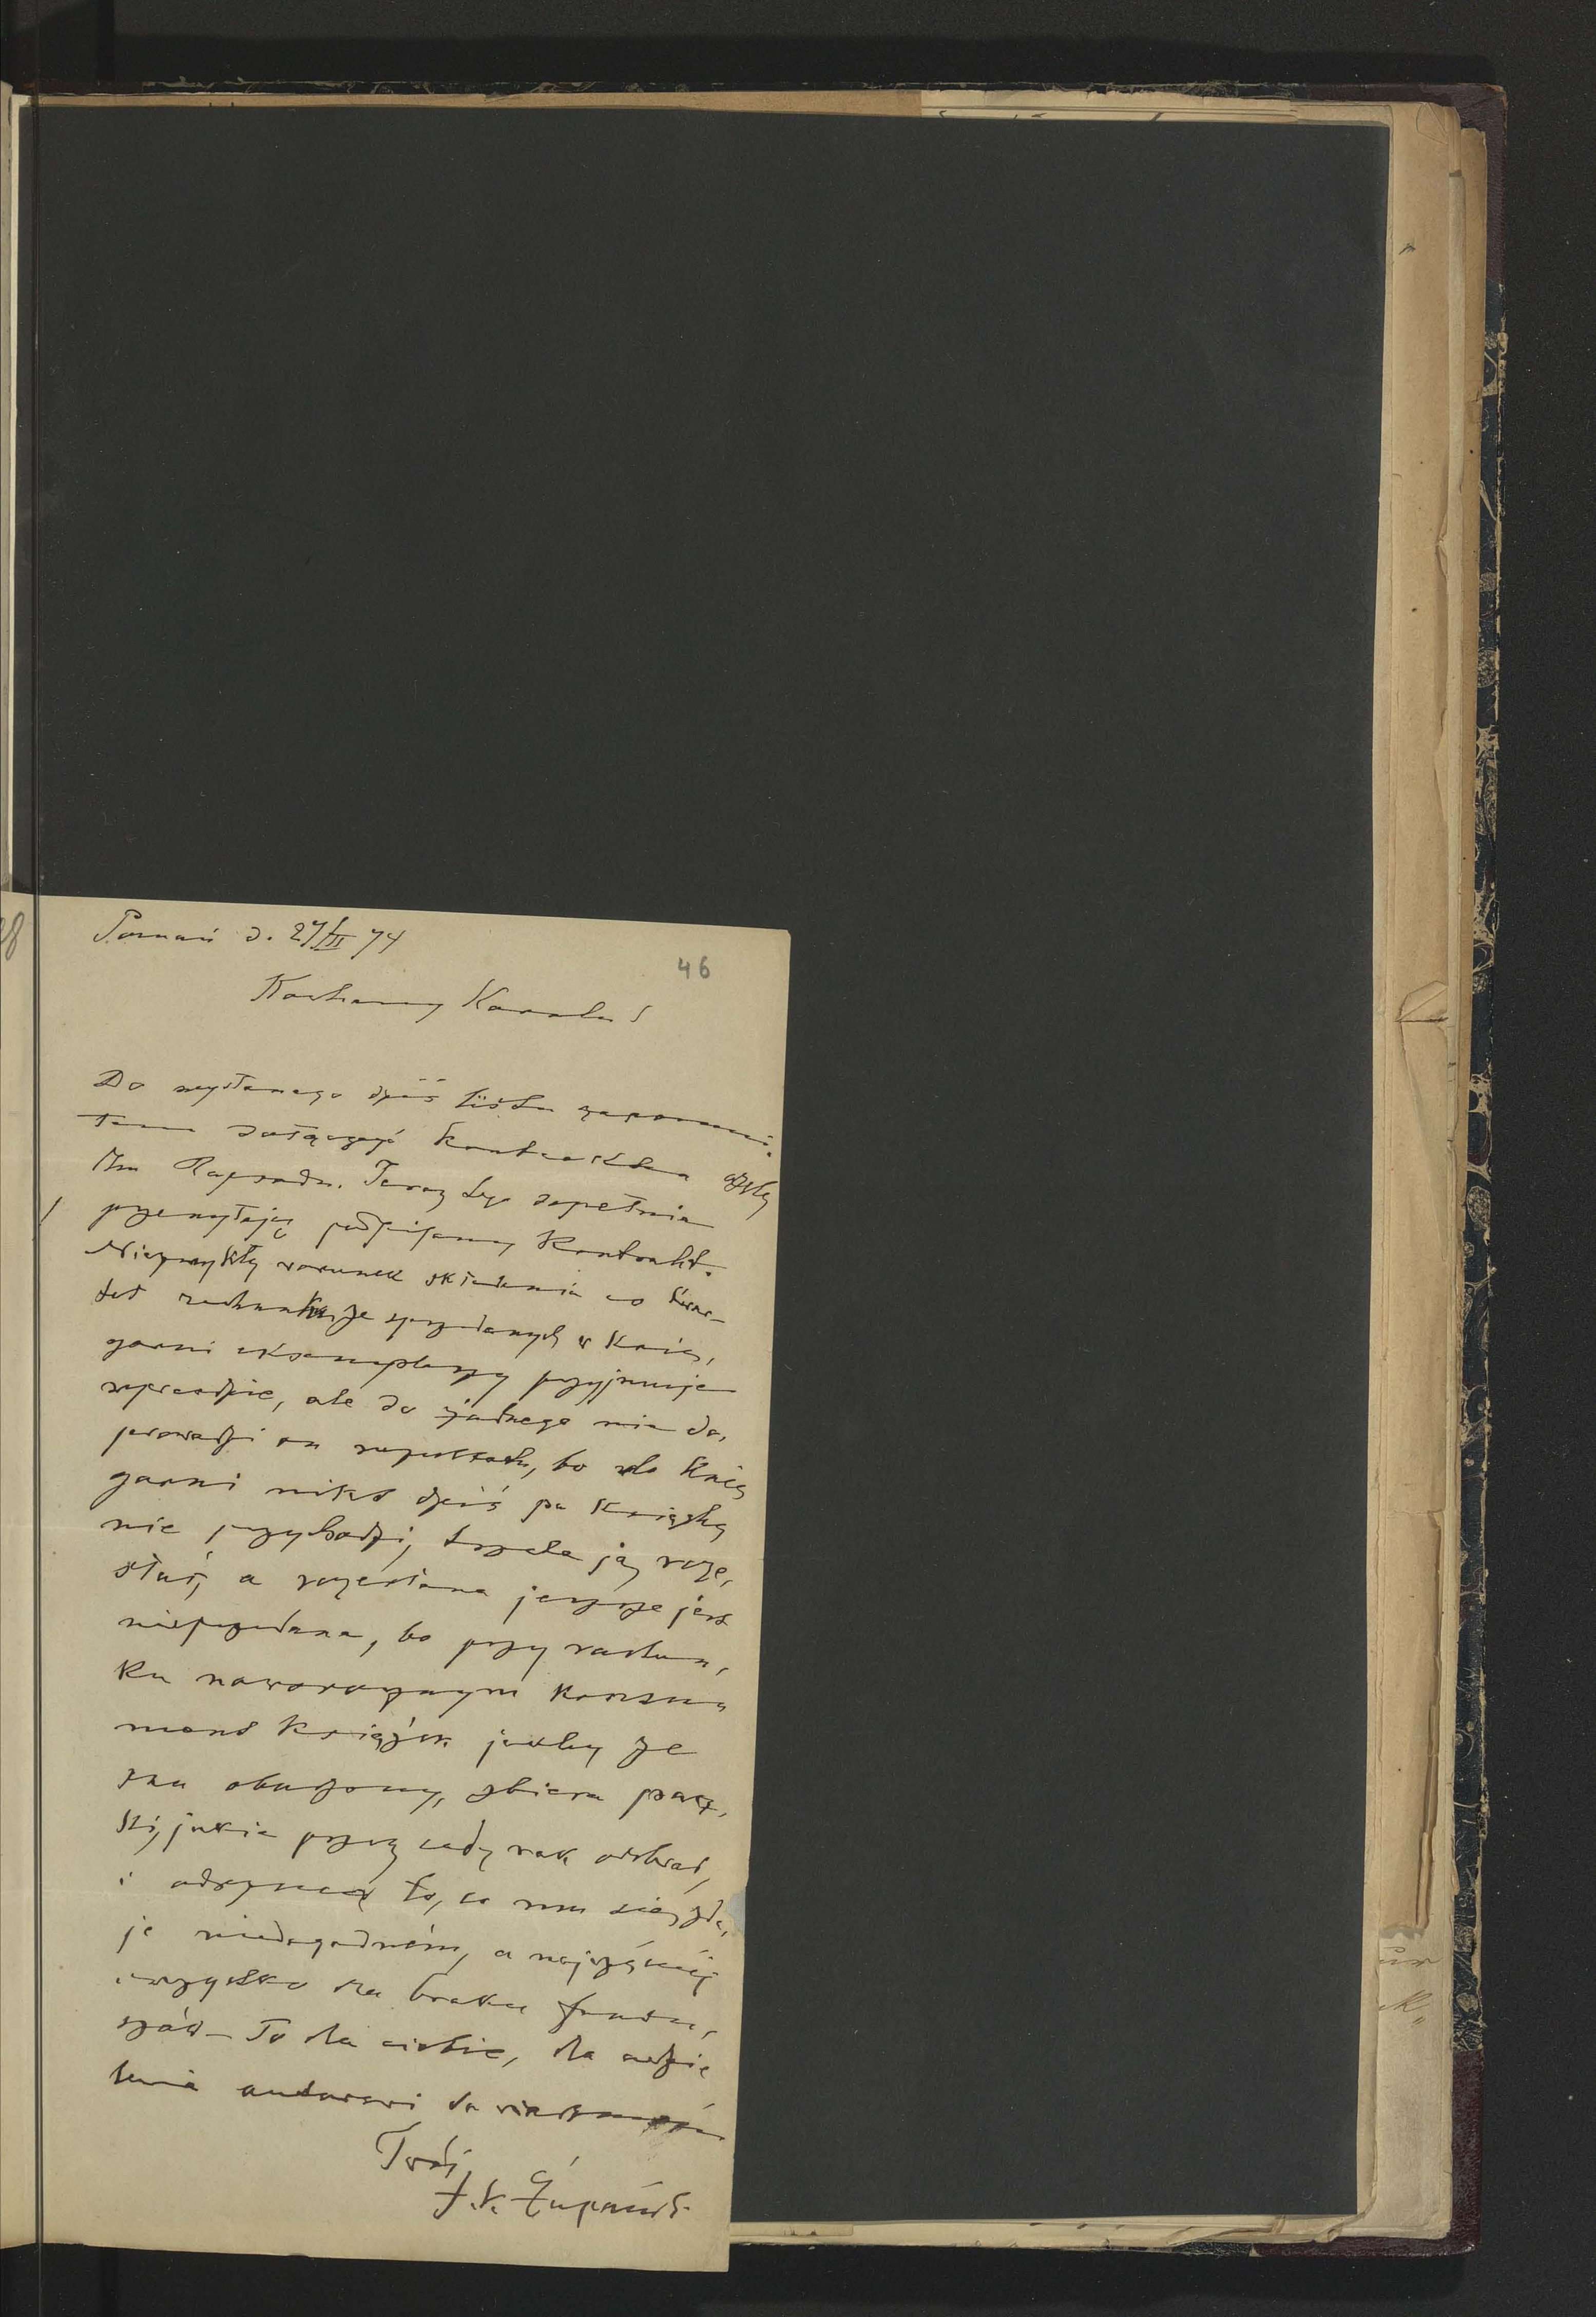 Poznań d. 27/III 74
46
Kochany Karolu!
Do wysłanego dziś listu zapomni-
łem dołączyć kontraktu
Rapsodu. Teraz tego dopełniam
przesyłając podpisany Kontrakt.
Niezwykły warunek składania co kwar-
tał rachunku ze sprzedanych w Księ-
garni eksemplarzy przyjmuję
wprawdzie, ale do żadnego nie do-
prowadzi on rezultatu, bo do Księ
garni nikt dziś po książkę
nie przychodzi, trzeba ją roze-
słać, a rozesłana jeszcze jest
niesprzedana, bo przy rachun-
ku noworocznym konsu-
ment książek jakby ze
snu obudzony, zbiera pacz-
ki, jakie przez cały rok odebrał,
i odrzuca to, co mu się zda-
je niedogodném, a najczęściéj
wszystko dla braku fundu-
szów – To dla ciebie, dla udzie
lenia autorowi do wiadomości
Twój
J. K. Żupański